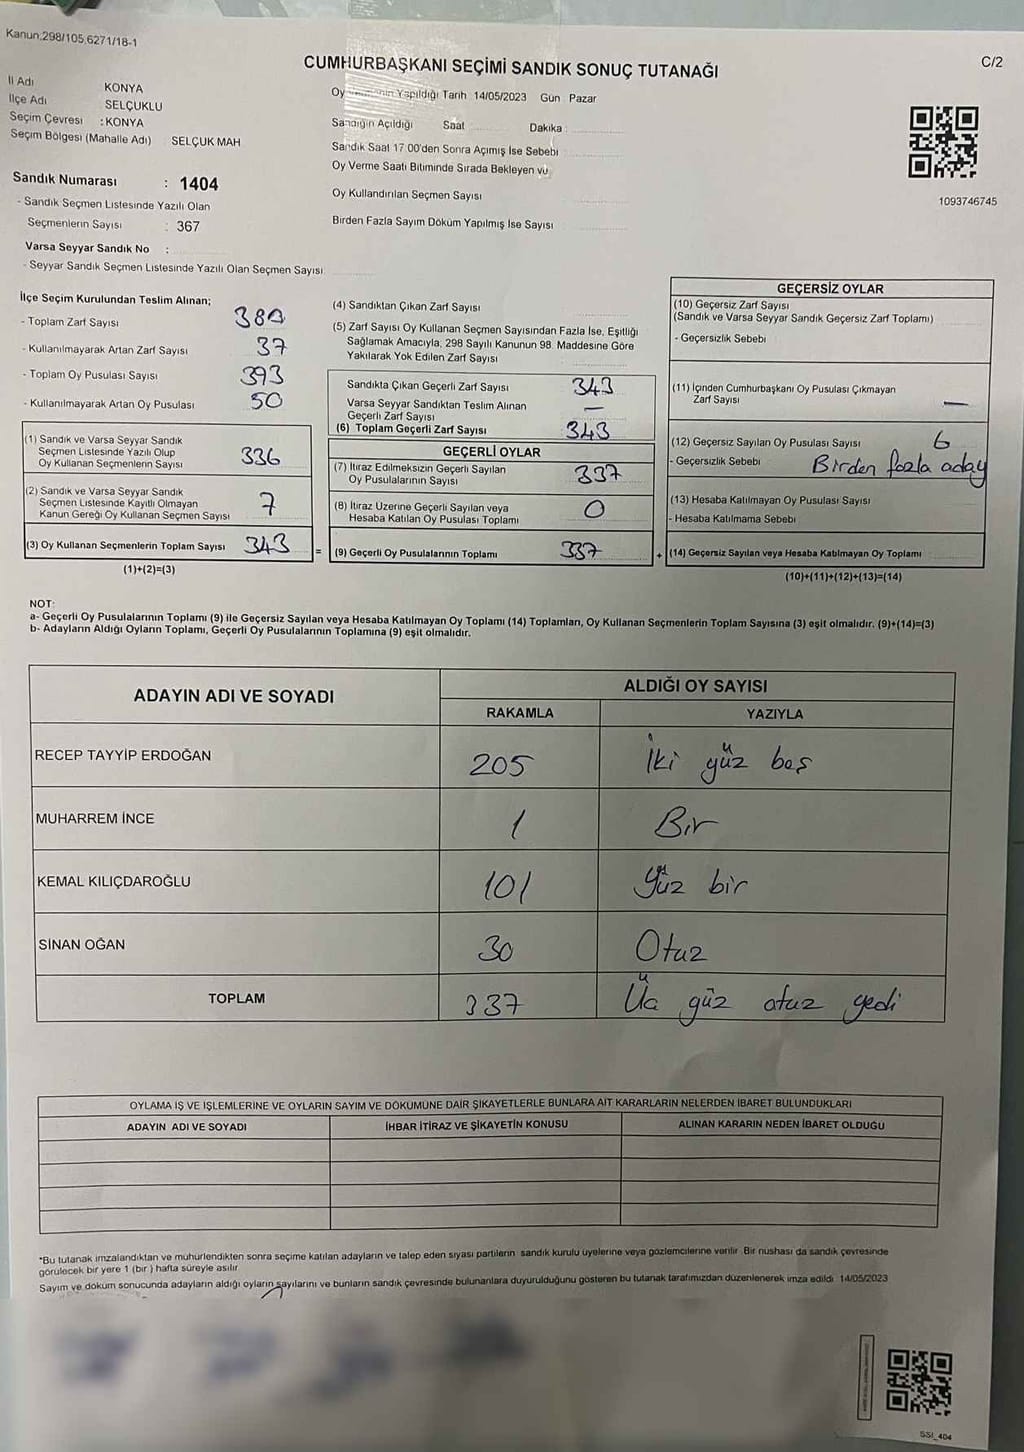 Kanun:298/105,6271/18-1
C/2
CUMHURBAŞKANI SEÇİMİ SANDIK SONUÇ TUTANAĞI
İl Adı KONYA
İlçe Adı : SELÇUKLU
Seçim Çevresi : KONYA
Seçim Bölgesi (Mahalle Adı) SELÇUK MAH
Sandık Numarası : 1404
- Sandık Seçmen Listesinde Yazılı Olan
Seçmenlerin Sayısı : 367
Varsa Seyyar Sandık No :
- Seyyar Sandık Seçmen Listesinde Yazılı Olan Seçmen Sayısı
Oy Yapıldığı Tarih 14/05/2023 Gün Pazar
Sandığın Açıldığı Saat Dakika :
Sandık Saat 17:00'den Sonra Açımış İse Sebebi
Oy Verme Saati Bitiminde Sırada Bekleyen vu
Oy Kullandırılan Seçmen Sayısı
Birden Fazla Sayım Döküm Yapılmış İse Sayısı
1093746745
İlçe Seçim Kurulundan Teslim Alınan;
- Toplam Zarf Sayısı 380
- Kullanılmayarak Artan Zarf Sayısı 37
- Toplam Oy Pusulası Sayısı 393
- Kullanılmayarak Artan Oy Pusulası 50
(1) Sandık ve Varsa Seyyar Sandık
Seçmen Listesinde Yazılı Olup
Oy Kullanan Seçmenlerin Sayısı 336
(2) Sandık ve Varsa Seyyar Sandık
Seçmen Listesinde Kayıtlı Olmayan
Kanun Gereği Oy Kullanan Seçmen Sayısı 7
(3) Oy Kullanan Seçmenlerin Toplam Sayısı 343
(1)+(2)=(3)
(4) Sandıktan Çıkan Zarf Sayısı
(5) Zarf Sayısı Oy Kullanan Seçmen Sayısından Fazla İse, Eşitliği
Sağlamak Amacıyla, 298 Sayılı Kanunun 98. Maddesine Göre
Yakılarak Yok Edilen Zarf Sayısı
Sandıkta Çıkan Geçerli Zarf Sayısı 343
Varsa Seyyar Sandıktan Teslim Alınan
Geçerli Zarf Sayısı —
(6) Toplam Geçerli Zarf Sayısı 343
GEÇERLİ OYLAR
(7) İtiraz Edilmeksizin Geçerli Sayılan
Oy Pusulalarının Sayısı 337
(8) İtiraz Üzerine Geçerli Sayılan veya
Hesaba Katılan Oy Pusulası Toplamı 0
= (9) Geçerli Oy Pusulalarının Toplamı 337
GEÇERSİZ OYLAR
(10) Geçersiz Zarf Sayısı
(Sandık ve Varsa Seyyar Sandık Geçersiz Zarf Toplamı)
- Geçersizlik Sebebi
(11) İçinden Cumhurbaşkanı Oy Pusulası Çıkmayan
Zarf Sayısı —
(12) Geçersiz Sayılan Oy Pusulası Sayısı 6
- Geçersizlik Sebebi Birden fazla aday
(13) Hesaba Katılmayan Oy Pusulası Sayısı
- Hesaba Katılmama Sebebi
+ (14) Geçersiz Sayılan veya Hesaba Katılmayan Oy Toplamı
(10)+(11)+(12)+(13)=(14)
NOT:
a- Geçerli Oy Pusulalarının Toplamı (9) ile Geçersiz Sayılan veya Hesaba Katılmayan Oy Toplamı (14) Toplamları, Oy Kullanan Seçmenlerin Toplam Sayısına (3) eşit olmalıdır. (9)+(14)=(3)
b- Adayların Aldığı Oyların Toplamı, Geçerli Oy Pusulalarının Toplamına (9) eşit olmalıdır.
ADAYIN ADI VE SOYADI ALDIĞI OY SAYISI
RAKAMLA YAZIYLA
RECEP TAYYİP ERDOĞAN 205 İki yüz beş
MUHARREM İNCE 1 Bir
KEMAL KILIÇDAROĞLU 101 Yüz bir
SİNAN OĞAN 30 Otuz
TOPLAM 337 Üç yüz otuz yedi
OYLAMA İŞ VE İŞLEMLERİNE VE OYLARIN SAYIM VE DÖKÜMÜNE DAİR ŞİKAYETLERLE BUNLARA AİT KARARLARIN NELERDEN İBARET BULUNDUKLARI
ADAYIN ADI VE SOYADI İHBAR İTİRAZ VE ŞİKAYETİN KONUSU ALINAN KARARIN NEDEN İBARET OLDUĞU
*Bu tutanak imzalandıktan ve mühürlendikten sonra seçime katılan adayların ve talep eden siyasi partilerin sandık kurulu üyelerine veya gözlemcilerine verilir. Bir nüshası da sandık çevresinde
görülecek bir yere 1 (bir) hafta süreyle asılır
Sayım ve döküm sonucunda adayların aldığı oyların sayılarını ve bunların sandık çevresinde bulunanlara duyurulduğunu gösteren bu tutanak tarafımızdan düzenlenerek imza edildi. 14/05/2023
SSI_404